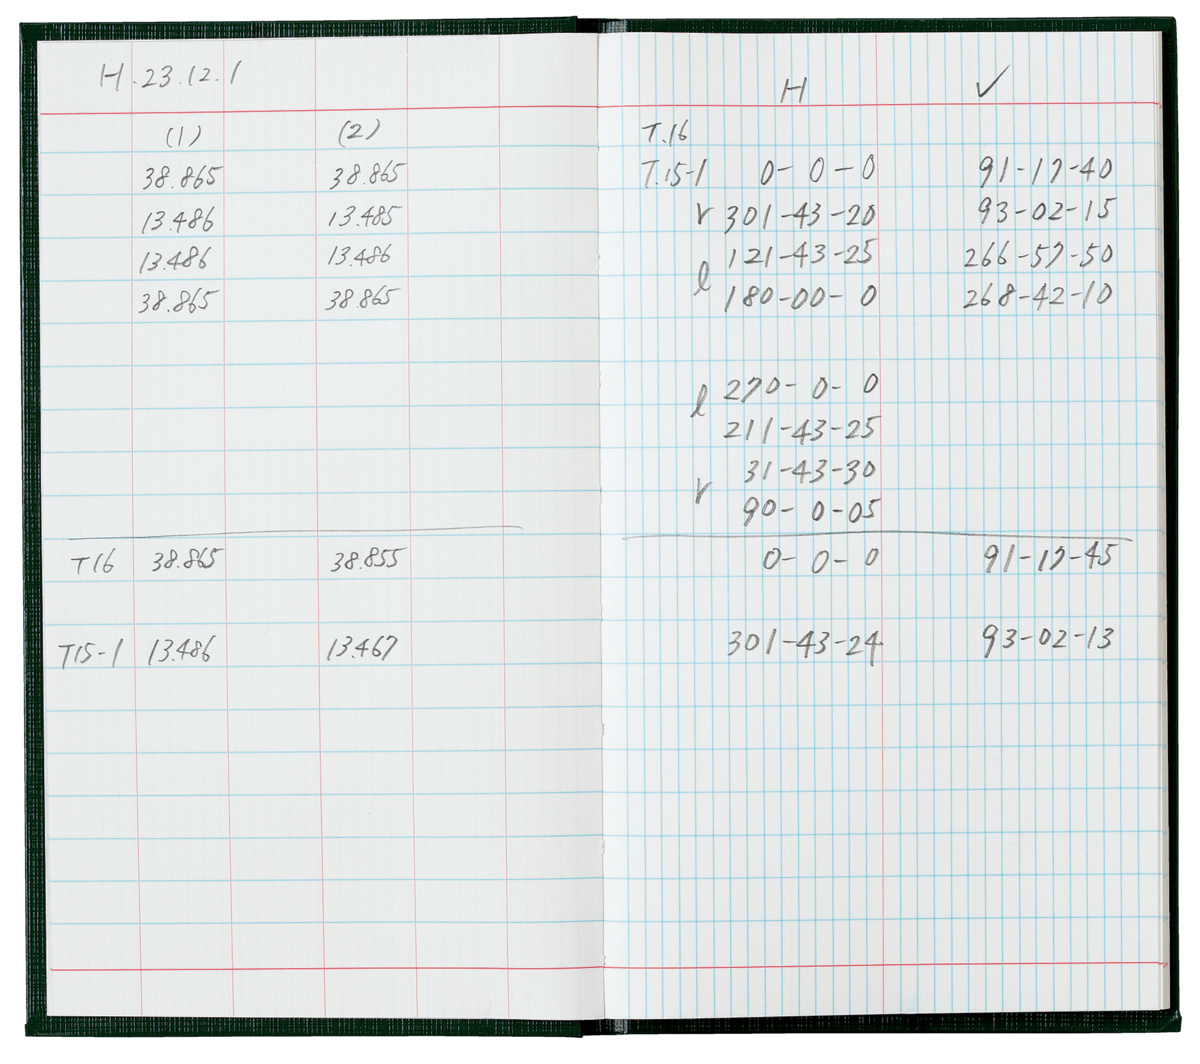 H.23.12.1
(1) (2)
38.865 38.865
13.486 13.485
13.486 13.486
38.865 38.865
T16 38.865 38.855
T15-1 13.486 13.467
H ✓
T.16
T.15-1 0-0-0 91-17-40
r 301-43-20 93-02-15
121-43-25 266-57-50
l
180-00-0 268-42-10
l 270-0-0
211-43-25
31-43-30
r
90-0-05
0-0-0 91-17-45
301-43-24 93-02-13